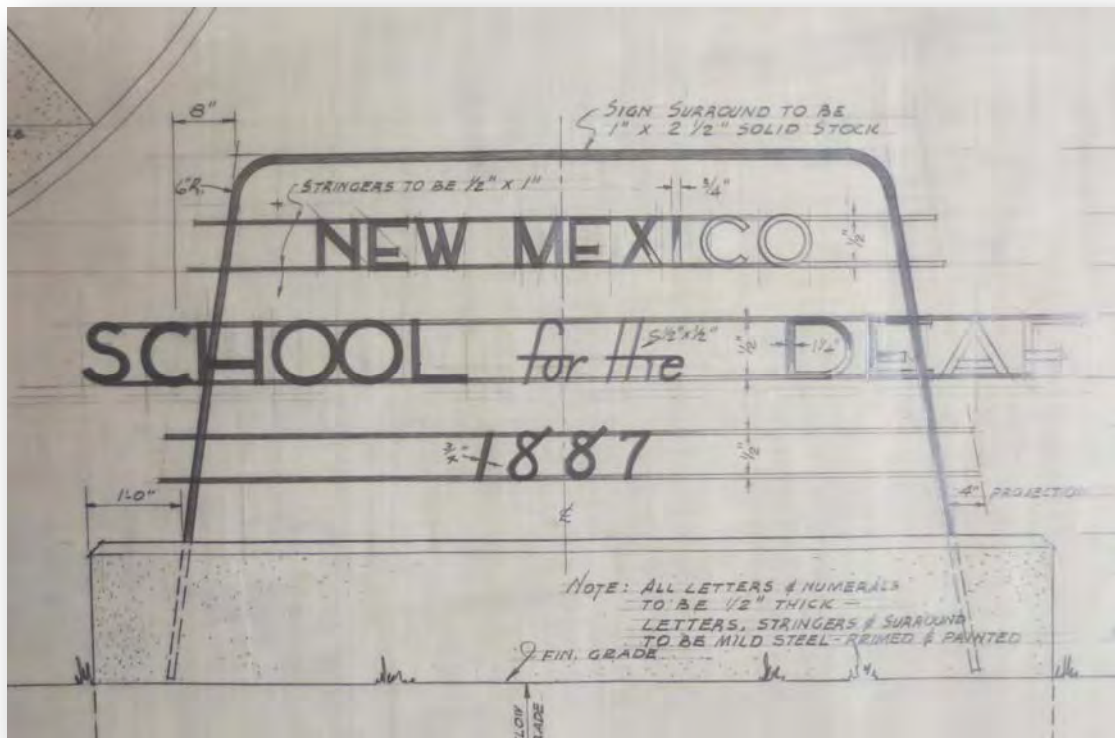 8"
SIGN SURROUND TO BE
1" X 2 1/2" SOLID STOCK
6"R.
STRINGERS TO BE 1/2" X 1"
3/4"
NEW MEXICO
1/2"
SCHOOL for the DEAF
5 1/2" x 1/2"
1/2"
1 1/4"
3/4"
1887
1/2"
1'-0"
4" PROJECTION
℄
NOTE: ALL LETTERS & NUMERALS
TO BE 1/2" THICK —
LETTERS, STRINGERS & SURROUND
TO BE MILD STEEL - PRIMED & PAINTED
FIN. GRADE